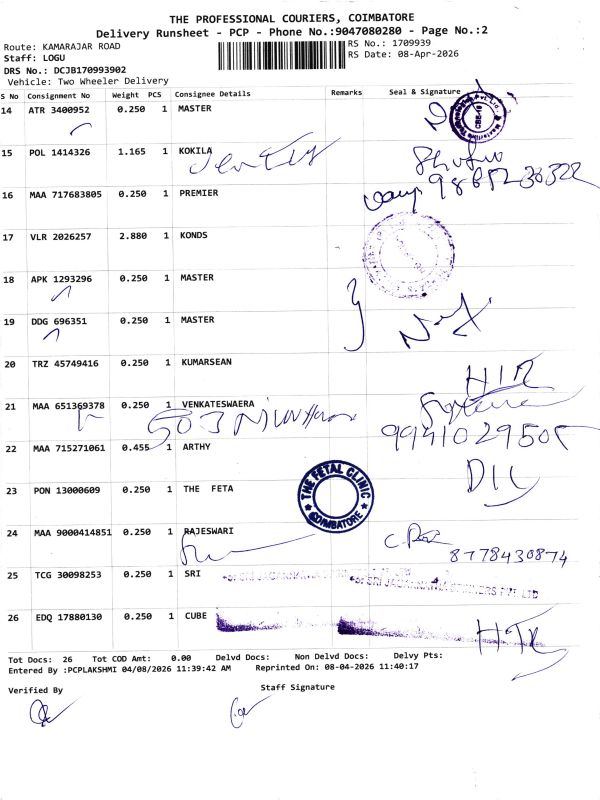 THE PROFESSIONAL COURIERS, COIMBATORE
Delivery Runsheet - PCP - Phone No.:9047080280 - Page No.:2
Route: KAMARAJAR ROAD
RS No.: 1709939
Staff: LOGU
RS Date: 08-Apr-2026
DRS No.: DCJB170993902
Vehicle: Two Wheeler Delivery
S No Consignment No Weight PCS Consignee Details Remarks Seal & Signature
14 ATR 3400952 0.250 1 MASTER
CBE-18
15 POL 1414326 1.165 1 KOKILA
16 MAA 717683805 0.250 1 PREMIER
17 VLR 2026257 2.880 1 KONDS
18 APK 1293296 0.250 1 MASTER
19 DDG 696351 0.250 1 MASTER
20 TRZ 45749416 0.250 1 KUMARSEAN
21 MAA 651369378 0.250 1 VENKATESWAERA
503
9941029505
22 MAA 715271061 0.455 1 ARTHY
23 PON 13000609 0.250 1 THE FETA
THE FETAL CLINIC
COIMBATORE
24 MAA 9000414851 0.250 1 RAJESWARI
8778430874
25 TCG 30098253 0.250 1 SRI
26 EDQ 17880130 0.250 1 CUBE
Tot Docs: 26 Tot COD Amt: 0.00 Delvd Docs: Non Delvd Docs: Delvy Pts:
Entered By :PCPLAKSHMI 04/08/2026 11:39:42 AM Reprinted On: 08-04-2026 11:40:17
Verified By Staff Signature